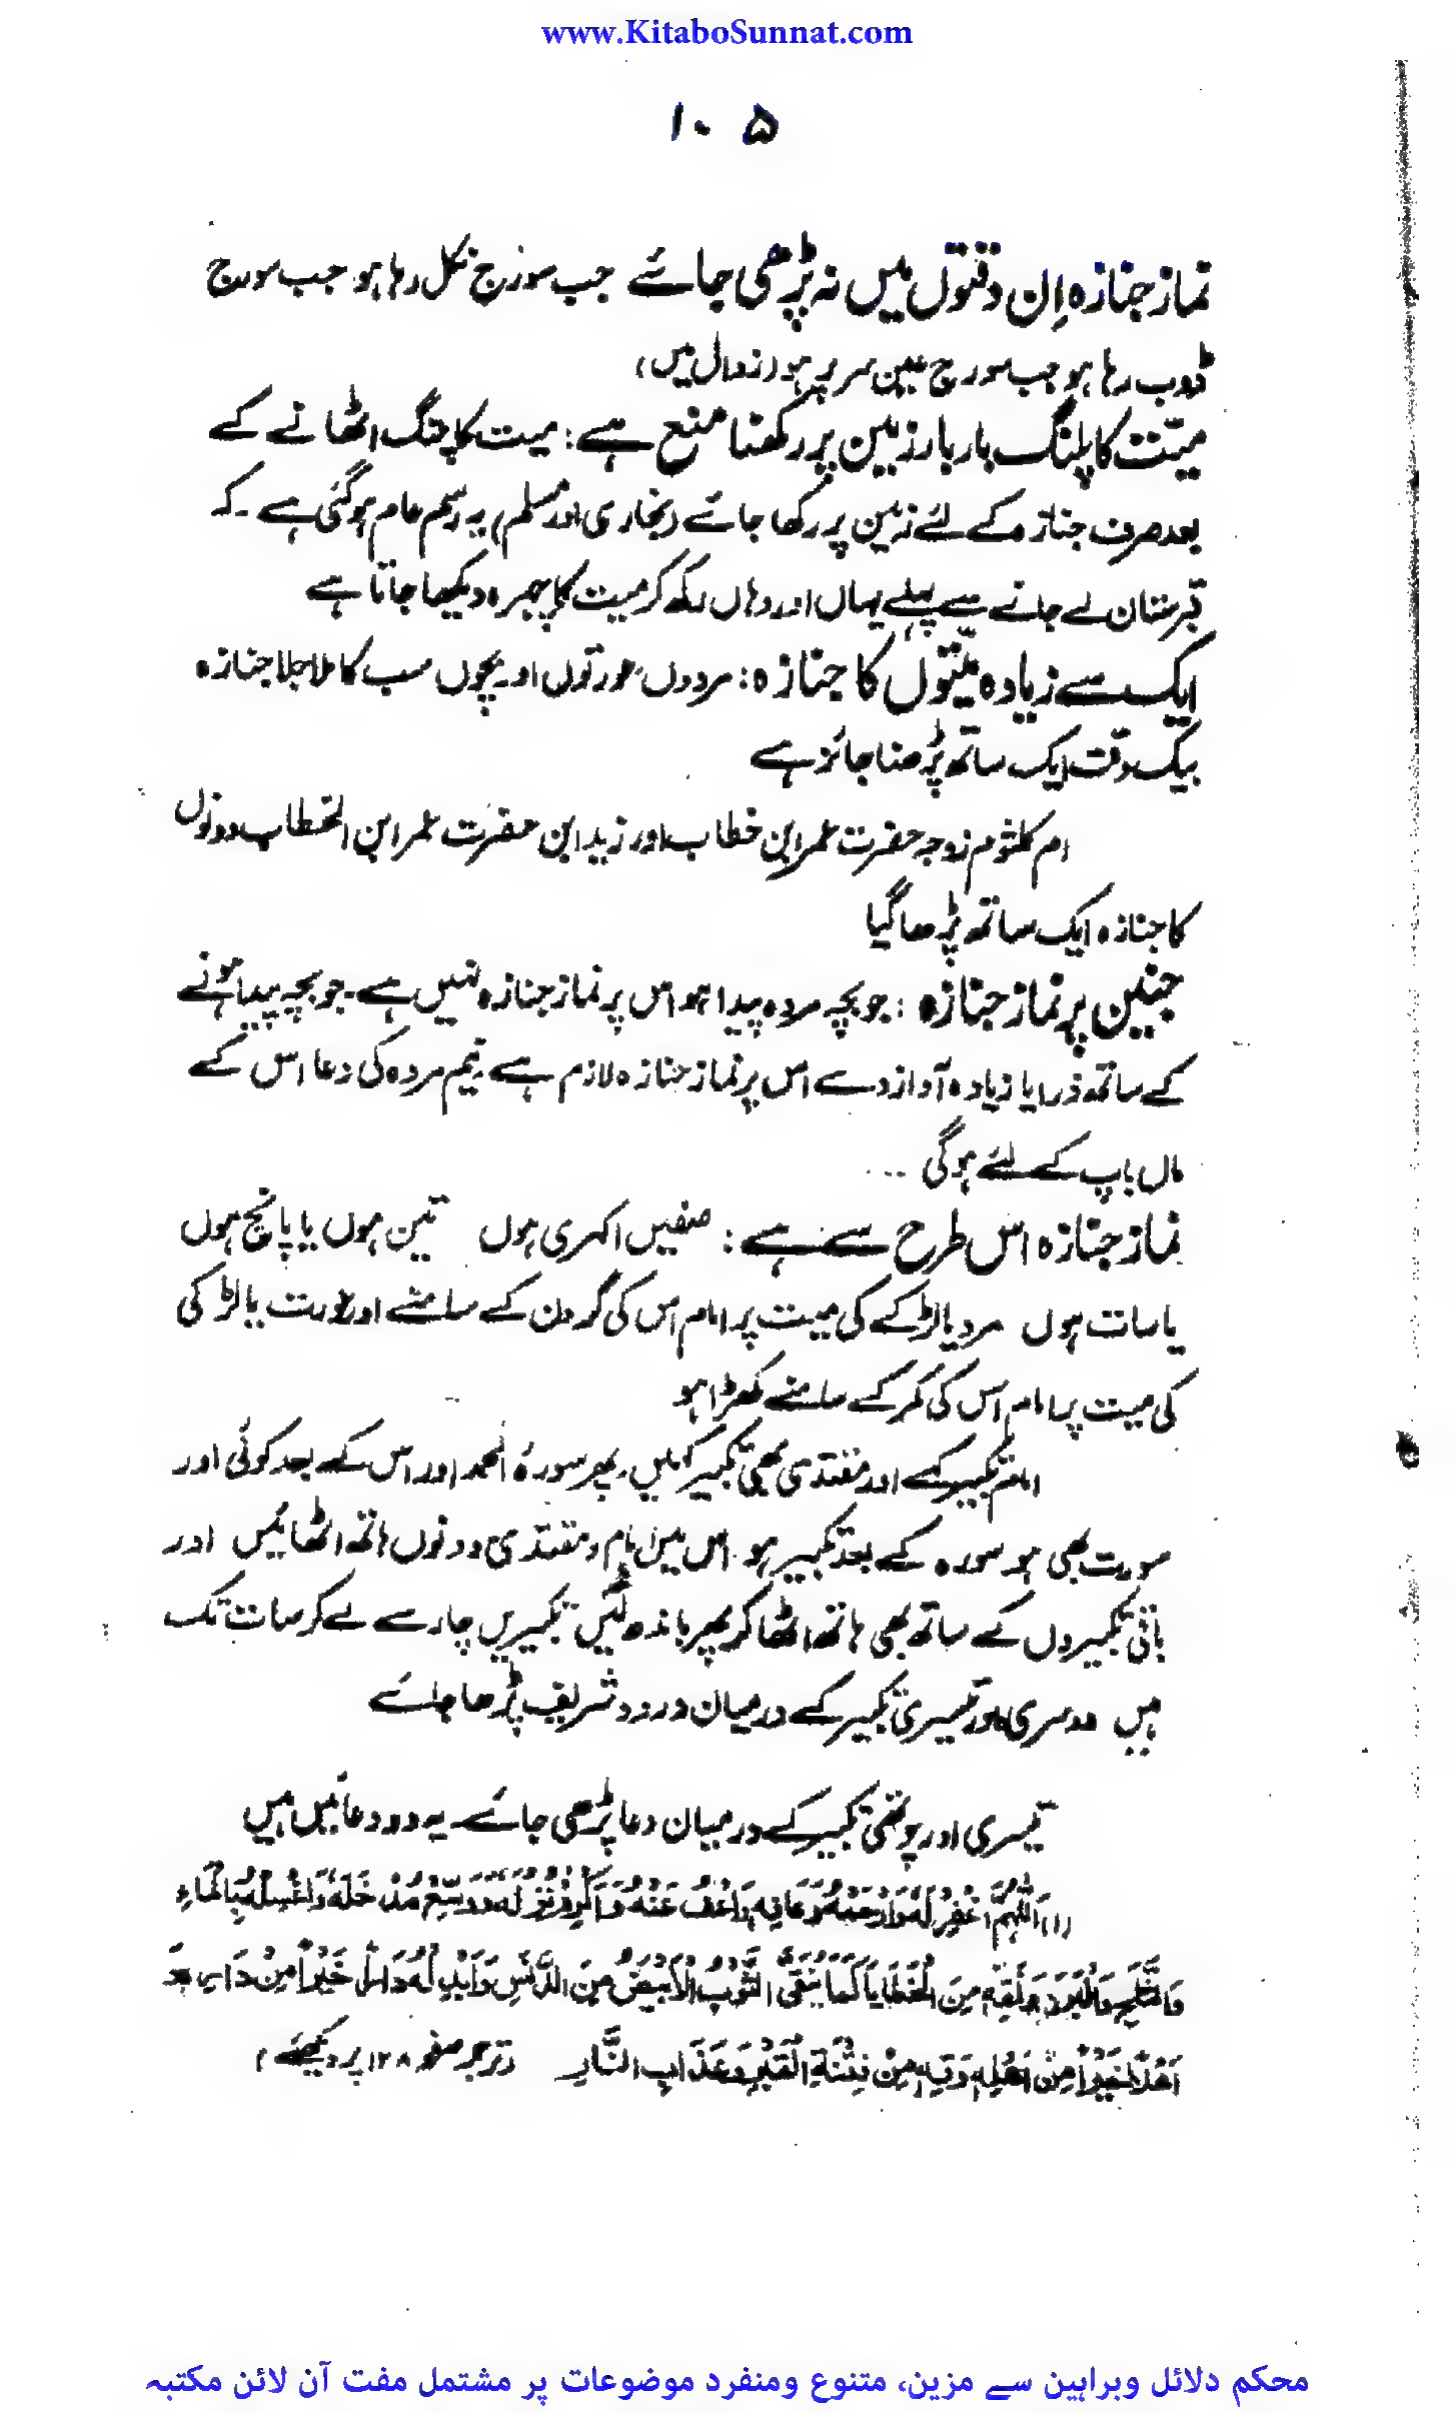 www.KitaboSunnat.com
۱۰۵
نماز جنازہ اِن وقتوں میں نہ پڑھی جائے جب سورج نکل رہا ہو۔ جب سورج
ڈوب رہا ہو جب سورج عین سر پر ہو (زوال میں)
میّت کا پلنگ بار بار زمین پر رکھنا منع ہے: میت کا پلنگ اٹھانے کے
بعد صرف جنازہ کے لئے زمین پر رکھا جائے (بخاری اور مسلم) یہ رسم عام ہو گئی ہے۔ کہ
قبرستان لے جانے سے پہلے یہاں اور وہاں رکھ کر میت کا چہرہ دیکھا جاتا ہے
ایک سے زیادہ میّتوں کا جنازہ: مردوں عورتوں اور بچوں سب کا ملا جلا جنازہ
بیک وقت ایک ساتھ پڑھنا جائز ہے
ام کلثوم زوجہ حضرت عمر ابن خطاب اور زید ابن حضرت عمر ابن الخطاب دونوں
کا جنازہ ایک ساتھ پڑھا گیا
جنین پر نماز جنازہ: جو بچہ مردہ پیدا ہو اس پر نماز جنازہ نہیں ہے۔ جو بچہ پیدا ہونے
کے ساتھ ذرا یا زیادہ آواز دے اس پر نماز جنازہ لازم ہے نیم مردہ کی دعا اس کے
ماں باپ کے لئے ہوگی
نماز جنازہ اس طرح سے ہے: صفیں اکہری ہوں تین ہوں یا پانچ ہوں
یا سات ہوں مرد یا لڑکے کی میت پر امام اس کی گردن کے سامنے اور عورت یا لڑکی
کی میت پر امام اس کی کمر کے سامنے کھڑا ہو
امام تکبیر کہے اور مقتدی بھی تکبیر کہیں۔ پھر سورہ الحمد اور اس کے بعد کوئی اور
سورت بھی ہو سورہ کے بعد تکبیر ہو۔ اس میں امام و مقتدی دونوں ہاتھ اٹھائیں اور
باقی تکبیروں کے ساتھ بھی ہاتھ اٹھا کر پھر باندھ لیں تکبیریں چار سے لے کر سات تک
ہیں دوسری اور تیسری تکبیر کے درمیان درود شریف پڑھا جائے
تیسری اور چوتھی تکبیر کے درمیان دعا پڑھی جائے۔ یہ دو دعائیں ہیں
(۱) اَللّٰهُمَّ اغْفِرْ لَهٗ وَارْحَمْهُ وَعَافِهٖ وَاعْفُ عَنْهُ وَاَكْرِمْ نُزُلَهٗ وَوَسِّعْ مُدْخَلَهٗ وَاغْسِلْهُ بِالْمَاءِ
وَالثَّلْجِ وَالْبَرَدِ وَنَقِّهٖ مِنَ الْخَطَايَا كَمَا يُنَقَّى الثَّوْبُ الْاَبْيَضُ مِنَ الدَّنَسِ وَاَبْدِلْهُ دَارًا خَيْرًا مِنْ دَارِهٖ وَ
اَهْلًا خَيْرًا مِنْ اَهْلِهٖ وَقِهٖ مِنْ فِتْنَةِ الْقَبْرِ وَعَذَابِ النَّارِ (ترجمہ صفحہ ۱۲۸ پر دیکھئے)
محکم دلائل وبراہین سے مزین، متنوع ومنفرد موضوعات پر مشتمل مفت آن لائن مکتبہ